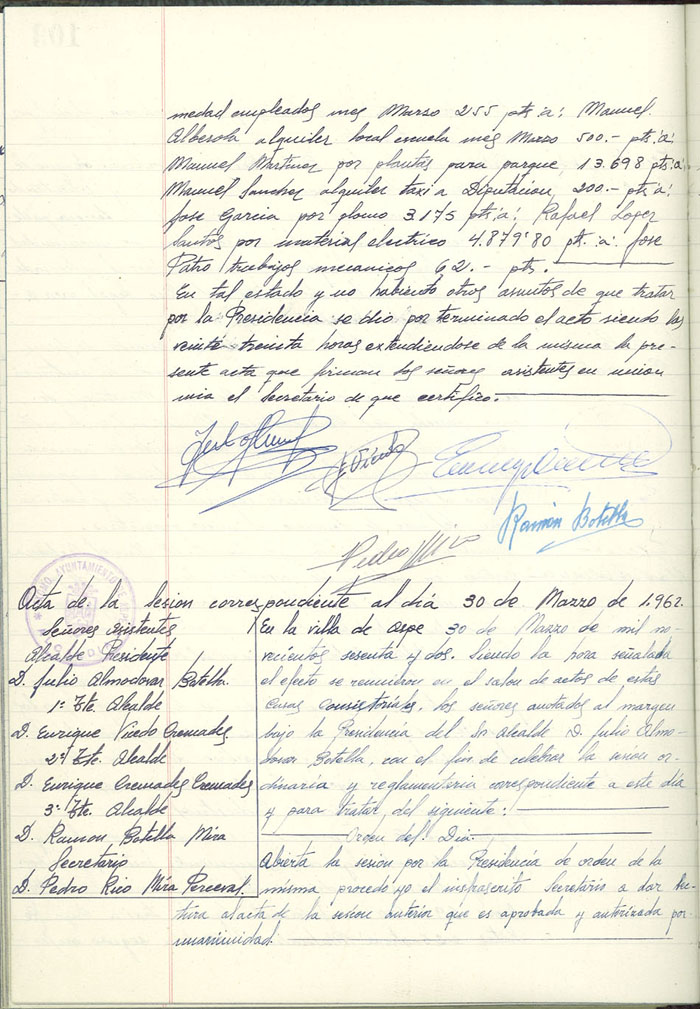 medad empleados mes Marzo 255 pts.a: Manuel
Alberola alquiler local escuela mes Marzo 500.- pts.a:
Manuel Martinez por plantas para parque, 13.698 pts.a:
Manuel Sanchez alquiler taxi a Diputacion, 200.- pts.a:
Jose Garcia por plomo 3.175 pts.a: Rafael Lopez
Santos por material electrico 4.879'80 pts.a: Jose
Patro trabajos mecanicos 62.- pts.
En tal estado y no habiendo otros asuntos de que tratar
por la Presidencia se dio por terminado el acto siendo las
veinte treinta horas extendiendose de la misma la pre-
sente acta que firman los señores asistentes en union
mia el Secretario de que certifico.
Ramón Botella
Pedro Rico
AYUNTAMIENTO DE
Acta de la sesion correspondiente al día 30 de Marzo de 1.962.
Señores asistentes
Alcalde Presidente
D. Julio Almodovar Botella
1º Tte. Alcalde
D. Enrique Vicedo Cremades
2º Tte. Alcalde
D. Enrique Cremades Cremades
3º Tte. Alcalde
D. Ramon Botella Mira
Secretario
D. Pedro Rico Mira Perceval.
En la villa de Aspe 30 de Marzo de mil no-
vecientos sesenta y dos. Siendo la hora señalada
al efecto se reunieron en el salon de actos de estas
Casas Consistoriales, los señores anotados al margen
bajo la Presidencia del Sr Alcalde D. Julio Almo-
dovar Botella, con el fin de celebrar la sesion or-
dinaria y reglamentaria correspondiente a este día
y para tratar del siguiente:
Orden del Dia.
Abierta la sesion por la Presidencia de orden de la
misma procedo yo el infrascrito Secretario a dar lec-
tura al acta de la sesion anterior que es aprobada y autorizada por
unanimidad.